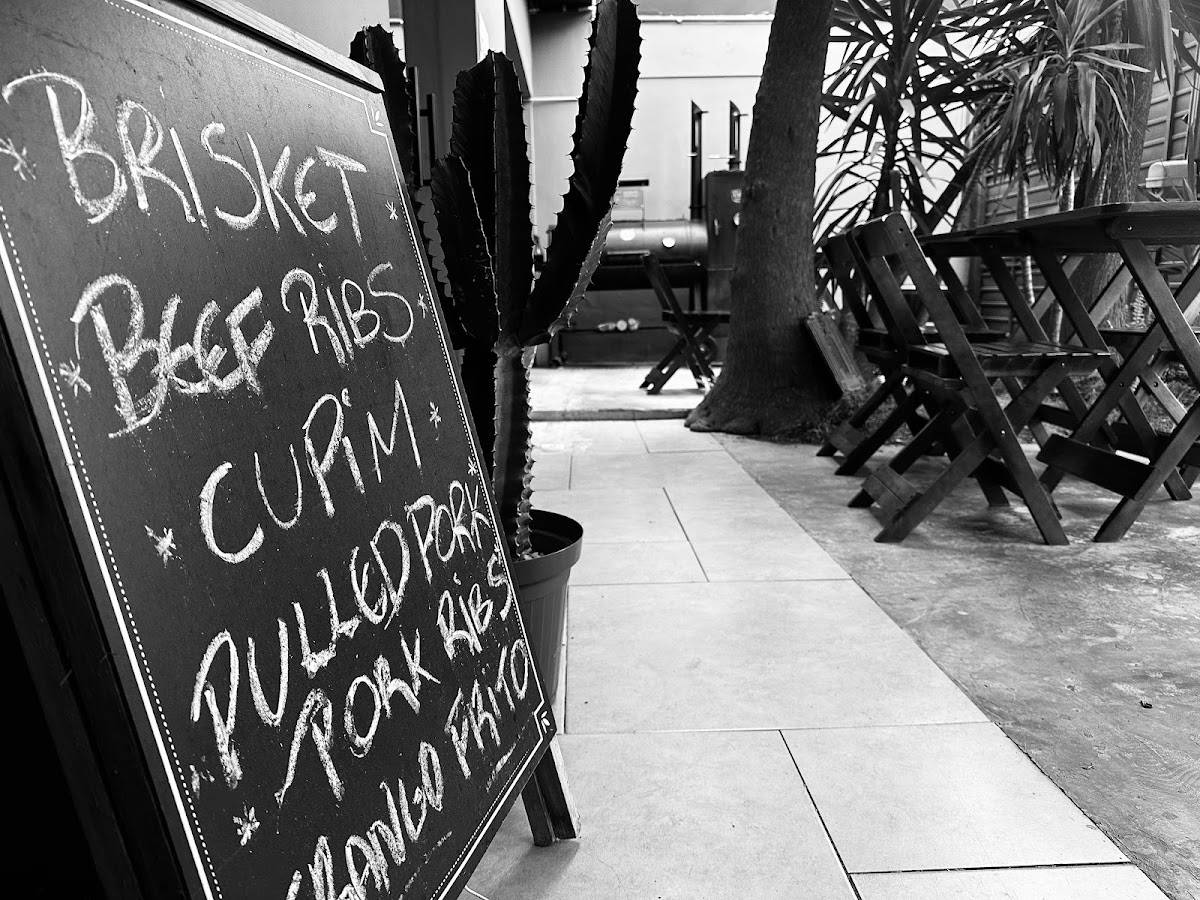 BRISKET
BEEF RiBS
CUPiM
PULLED PORK
PORK RiBS
FRANGO FRiTO